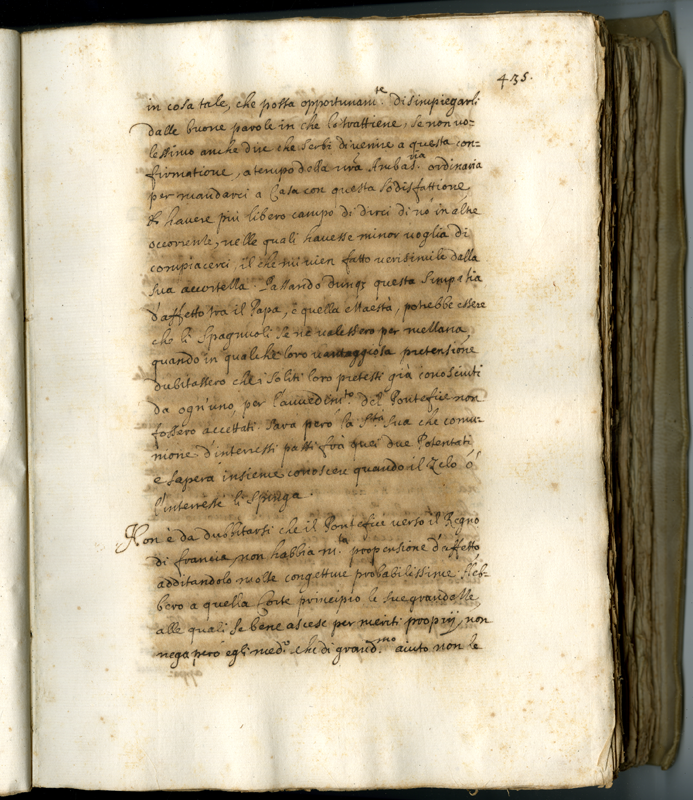 435.
in cosa tale, che possa opportunam.te disimpiegarsi
dalle buone parole in che lo trattiene, se non vo-
lessimo anche dire che serbi di venire a questa con-
firmatione, a tempo della nra Ambas.ria ordinaria
per mandarci a Casa con questa sodisfattione,
& havere più libero campo di dirci di nò in altre
occorrenze, nelle quali havesse minor voglia di
compiacerci, il che mi vien fatto verisimile dalla
sua accortezza. Passando dunq; questa simpathia
d'affetto tra il Papa, e quella Maestà, potrebbe essere
che li Spagnuoli se ne valessero per mezzana,
quando in qualche loro vantaggiosa pretensione
dubitassero che i soliti loro pretesti già conosciuti
da ogn'uno, per l'avvedim.to del Pontefice non
fossero accettati. Sarà però la S.tà Sua che comu-
nione d'interessi passi frà quei due Potentati
e saprà insieme conoscere quando il Zelo ò
l'interesse li spinga.
Non è da dubbitarsi che il Pontefice verso il Regno
di francia non habbia m.ta propensione d'affetto
additandolo molte congetture probabilissime. Heb-
bero a quella Corte principio le sue grandezze,
alle quali se bene ascese per meriti proprij, non
nega però egli med.o che di grand.mo aiuto non le